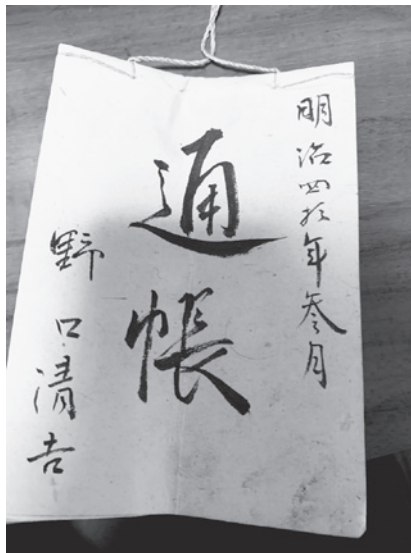 明治四拾年参月
通帳
野口清吉